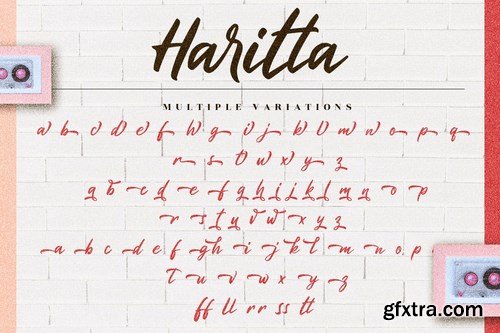 Haritta
MULTIPLE VARIATIONS
a b c d e f h g i j k l m n o p q
r s t w x y z
a b c d e f g h i j k l m n o p
r s t u v w x y z
a b c d e f g h i j k l m n o p
t u v w x y z
ff ll rr ss tt
gfxtra.com